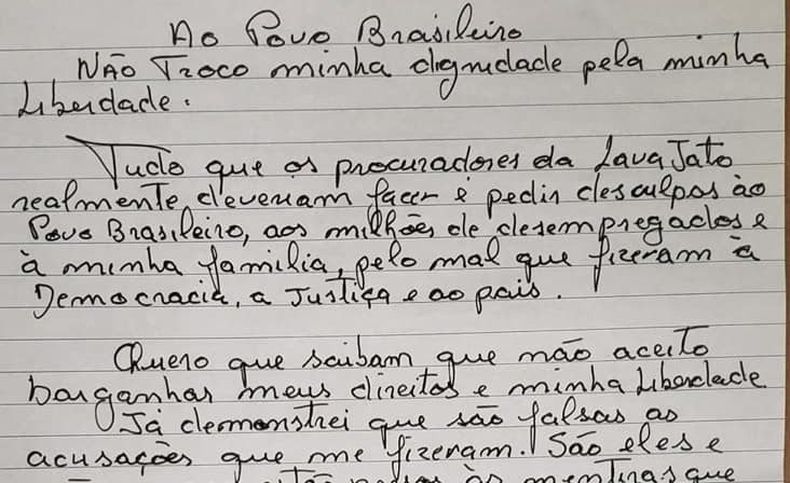 Ao Povo Brasileiro
Não Troco minha dignidade pela minha
Liberdade.
Tudo que os procuradores da Lava Jato
realmente deveriam fazer é pedir desculpas ao
Povo Brasileiro, aos milhões de desempregados e
à minha familia, pelo mal que fizeram à
Democracia, a Justiça e ao pais.
Quero que saibam que não aceito
barganhar meus direitos e minha Liberdade
Já demonstrei que são falsas as
acusações que me fizeram. São eles e
às mentiras que